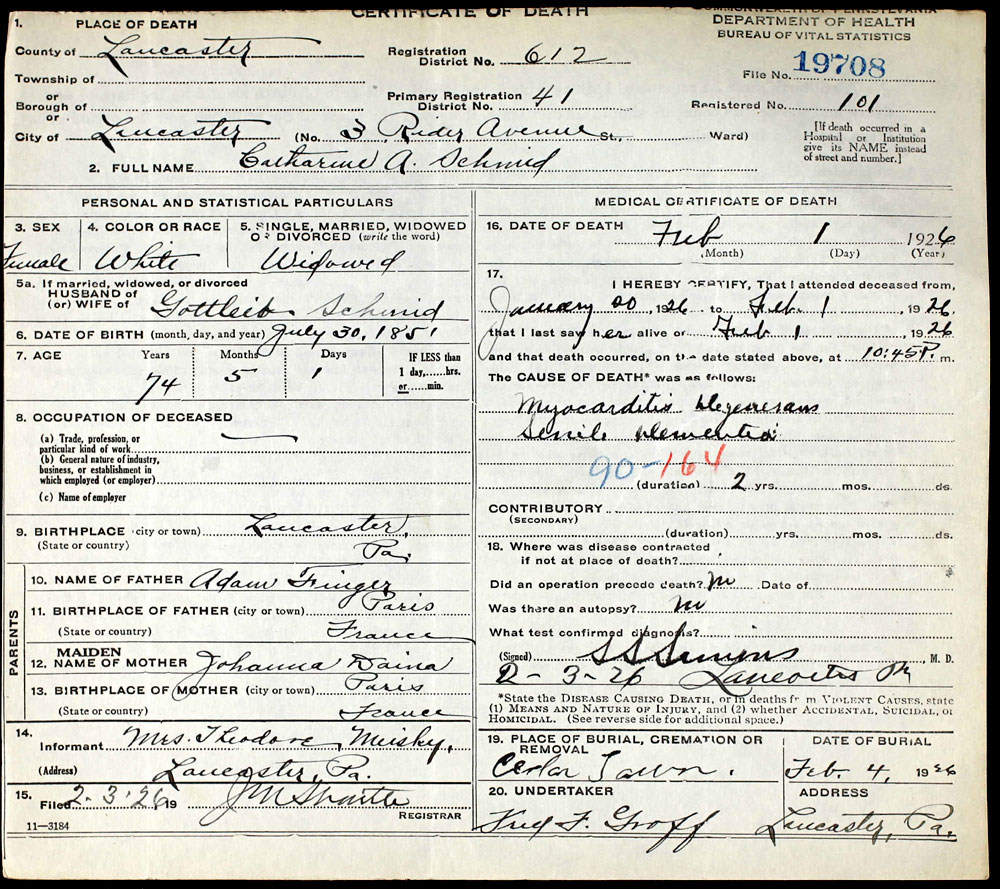 CERTIFICATE OF DEATH
COMMONWEALTH OF PENNSYLVANIA
DEPARTMENT OF HEALTH
BUREAU OF VITAL STATISTICS
1. PLACE OF DEATH
County of Lancaster
Township of
or
Borough of
or
City of Lancaster (No. 3 Rider Avenue St., Ward)
Registration District No. 612
Primary Registration District No. 41
File No. 19708
Registered No. 101
[If death occurred in a Hospital or Institution give its NAME instead of street and number.]
2. FULL NAME Catharine A. Schmid
PERSONAL AND STATISTICAL PARTICULARS
3. SEX
Female
4. COLOR OR RACE
White
5. SINGLE, MARRIED, WIDOWED
OR DIVORCED (write the word)
Widowed
5a. If married, widowed, or divorced
HUSBAND of
(or) WIFE of Gottleib Schmid
6. DATE OF BIRTH (month, day, and year) July 30, 1851
7. AGE Years Months Days
74 5 1
IF LESS than
1 day,......hrs.
or......min.
8. OCCUPATION OF DECEASED
(a) Trade, profession, or
particular kind of work
(b) General nature of industry,
business, or establishment in
which employed (or employer)
(c) Name of employer
9. BIRTHPLACE (city or town) Lancaster,
(State or country) Pa.
PARENTS
10. NAME OF FATHER Adam Finger
11. BIRTHPLACE OF FATHER (city or town) Paris
(State or country) France
12. MAIDEN NAME OF MOTHER Johanna Daina
13. BIRTHPLACE OF MOTHER (city or town) Paris
(State or country) France
14. Informant Mrs. Theodore
(Address) Lancaster, Pa.
15. Filed 2-3-26 19
REGISTRAR
11—3184
MEDICAL CERTIFICATE OF DEATH
16. DATE OF DEATH Feb 1 1926
(Month) (Day) (Year)
17. I HEREBY CERTIFY, That I attended deceased from,
January 20, 1926 to Feb. 1, 1926.
that I last saw her alive on Feb 1, 1926
and that death occurred, on the date stated above, at 10:45 P. m.
The CAUSE OF DEATH* was as follows:
Myocarditis Degenerans
Senile Dementia
90-164
(duration) 2 yrs. mos. ds.
CONTRIBUTORY
(SECONDARY)
(duration) yrs. mos. ds.
18. Where was disease contracted
if not at place of death?
Did an operation precede death? no Date of
Was there an autopsy? no
What test confirmed diagnosis?
(Signed) S S Simons, M. D.
2-3-26 Lancaster Pa
*State the DISEASE CAUSING DEATH, or in deaths from VIOLENT CAUSES, state
(1) MEANS AND NATURE OF INJURY, and (2) whether ACCIDENTAL, SUICIDAL, or
HOMICIDAL. (See reverse side for additional space.)
19. PLACE OF BURIAL, CREMATION OR
REMOVAL
Cedar Lawn.
DATE OF BURIAL
Feb. 4, 1926
20. UNDERTAKER
Fred F. Groff
ADDRESS
Lancaster, Pa.